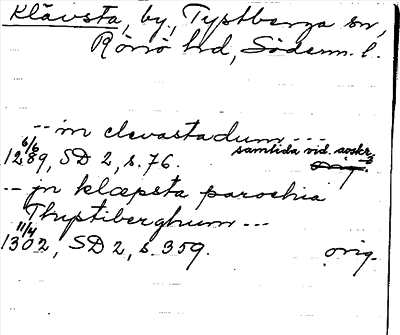 Klävsta, by, Typtberga sn,
Rönö hd, Söderm. l.
-- in clevastadum ---
samtida vid. avskr.
6/6
1289, SD 2, s. 76.
-- in klæpsta parochia
Thyptiberghum ---
11/4
1302, SD 2, s. 359. orig.